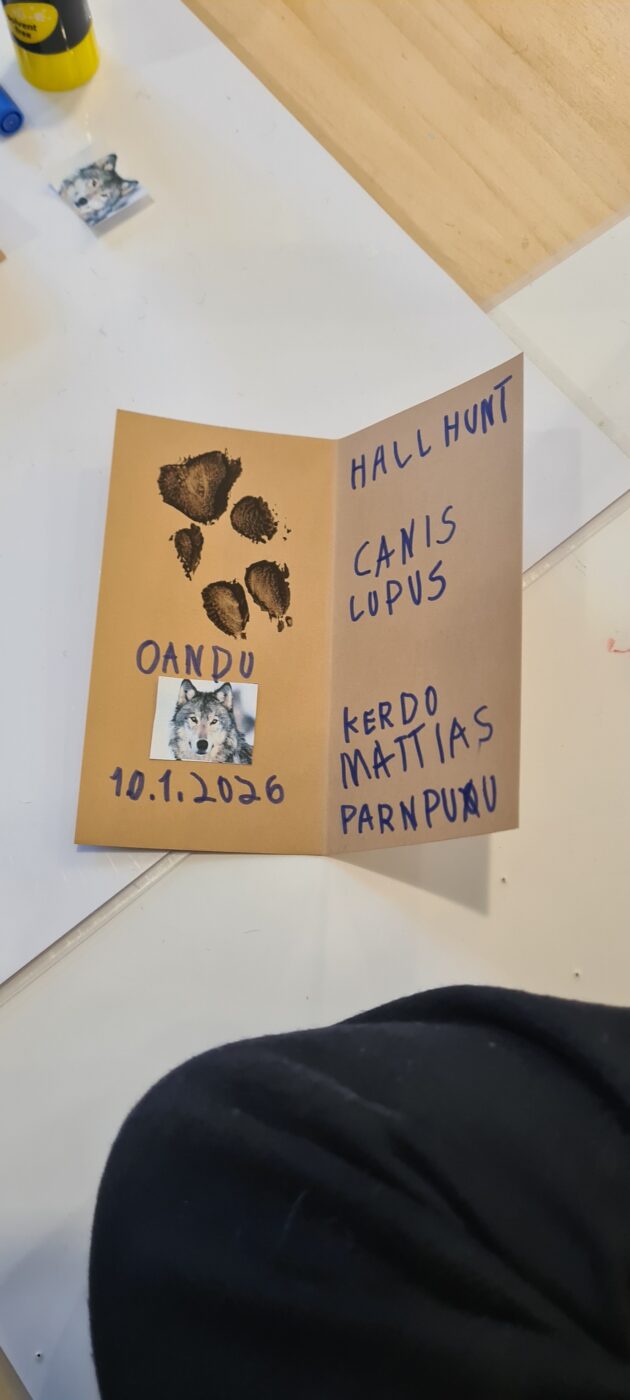 OANDU
10.1.2026
HALL HUNT
CANIS
LUPUS
KERDO
MATTIAS